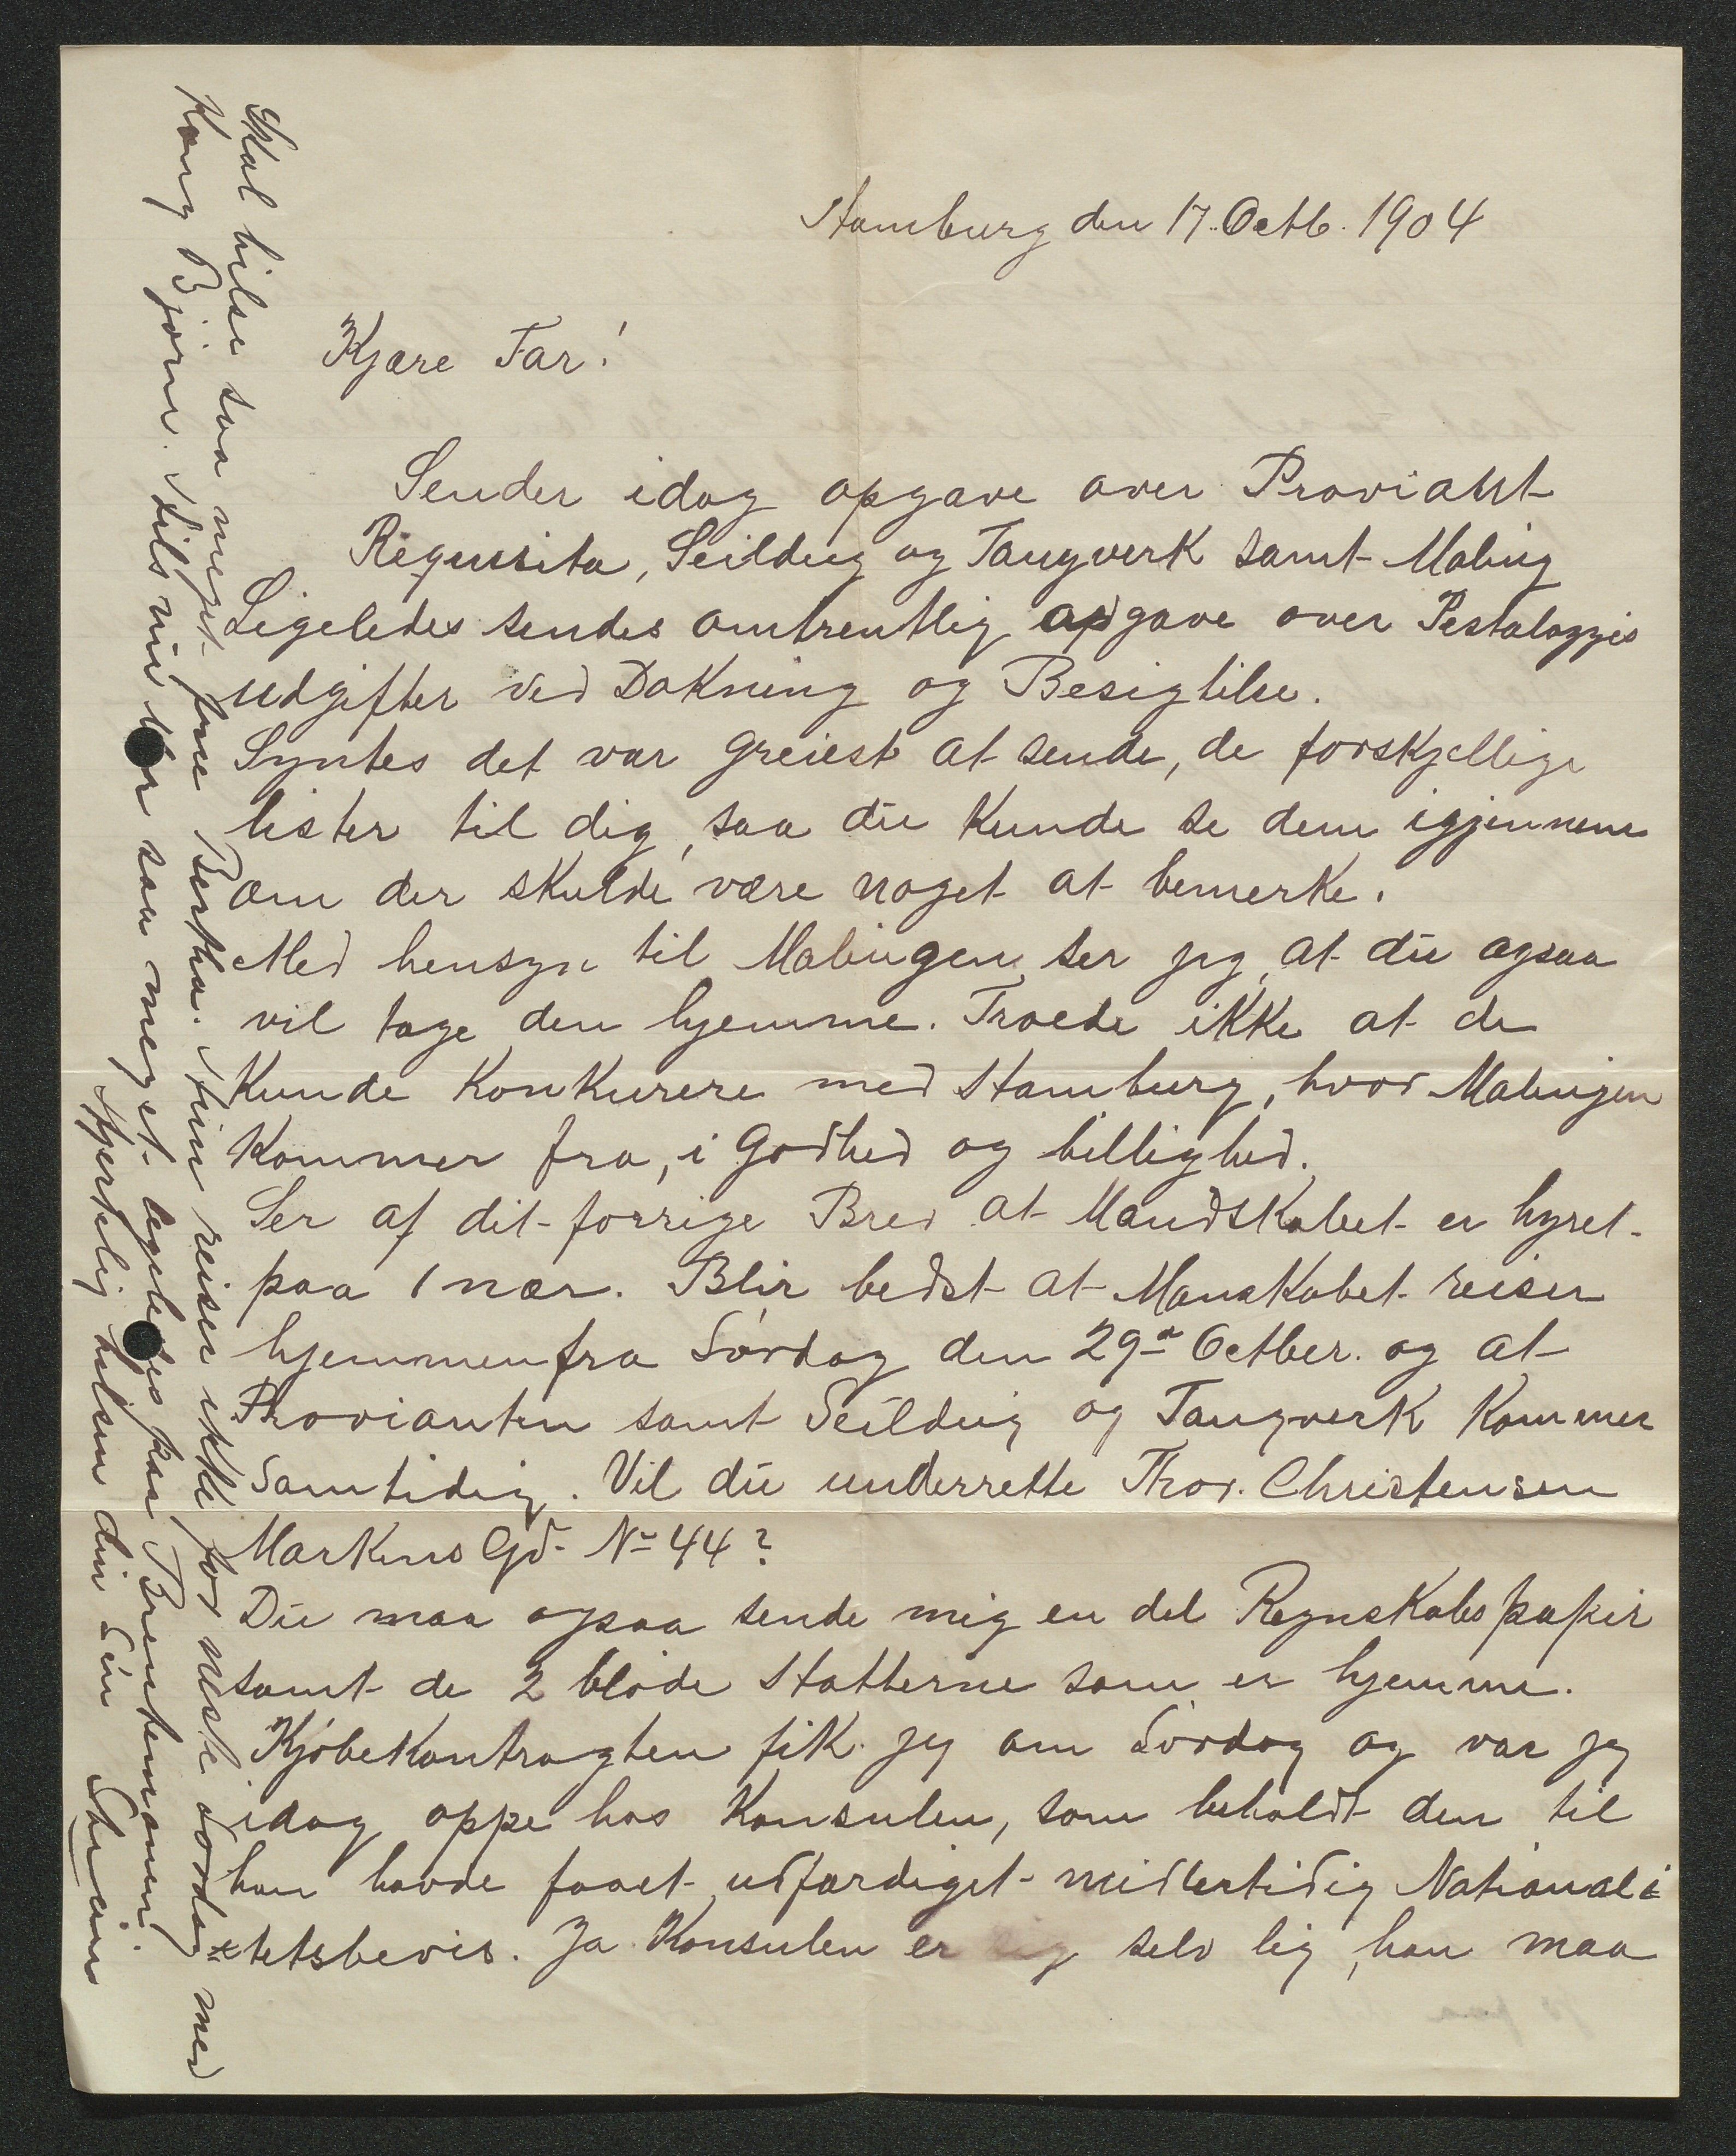 Hamburg den 17. Octb. 1904
Kjære Far!
Sender idag opgave over Proviant
Requisita, Seildug og Taugverk samt Maling
Ligeledes sendes omtrentlig opgave over Pestalozzis
udgifter ved Dokning og Besigtilse.
Syntes det var greiest at sende, de forskjellige
lister til dig, saa du kunde se dem igjennem
om der skulde være noget at bemerke.
Med hensyn til Malingen ser jeg, at du ogsaa
vil tage den hjemme. Troede ikke at de
kunde konkurere med Hamburg, hvor Malingen
kommer fra, i godhed og billighed.
Ser af dit forrige Brev at Mandskabet er hyret
paa 1 nær. Blir bedst at Manskabet reiser
hjemmenfra Lørdag den 29de Octber. og at
Provianten samt Seildug og Taugverk kommer
samtidig. Vil du underrette Thor. Christensen
Markens Gd. No 44?
Du maa ogsaa sende mig en del Regnskabspapir
samt de 2 bløde Hatterne som er hjemme.
Kjøbekontragten fik jeg om Lørdag og var jeg
idag oppe hos Konsulen, som beholdt den til
han havde faaet udfærdiget midlertidig Nationali
tetsbevis. Ja Konsulen er selv lig, han maa
Skal hilse saa meget fru Bertha. Hun reiser ikke før næste Lørdag med
Kong Bjørn. Hils mor saa meget ligeledes paa
Hjertelig hilsen din Søn